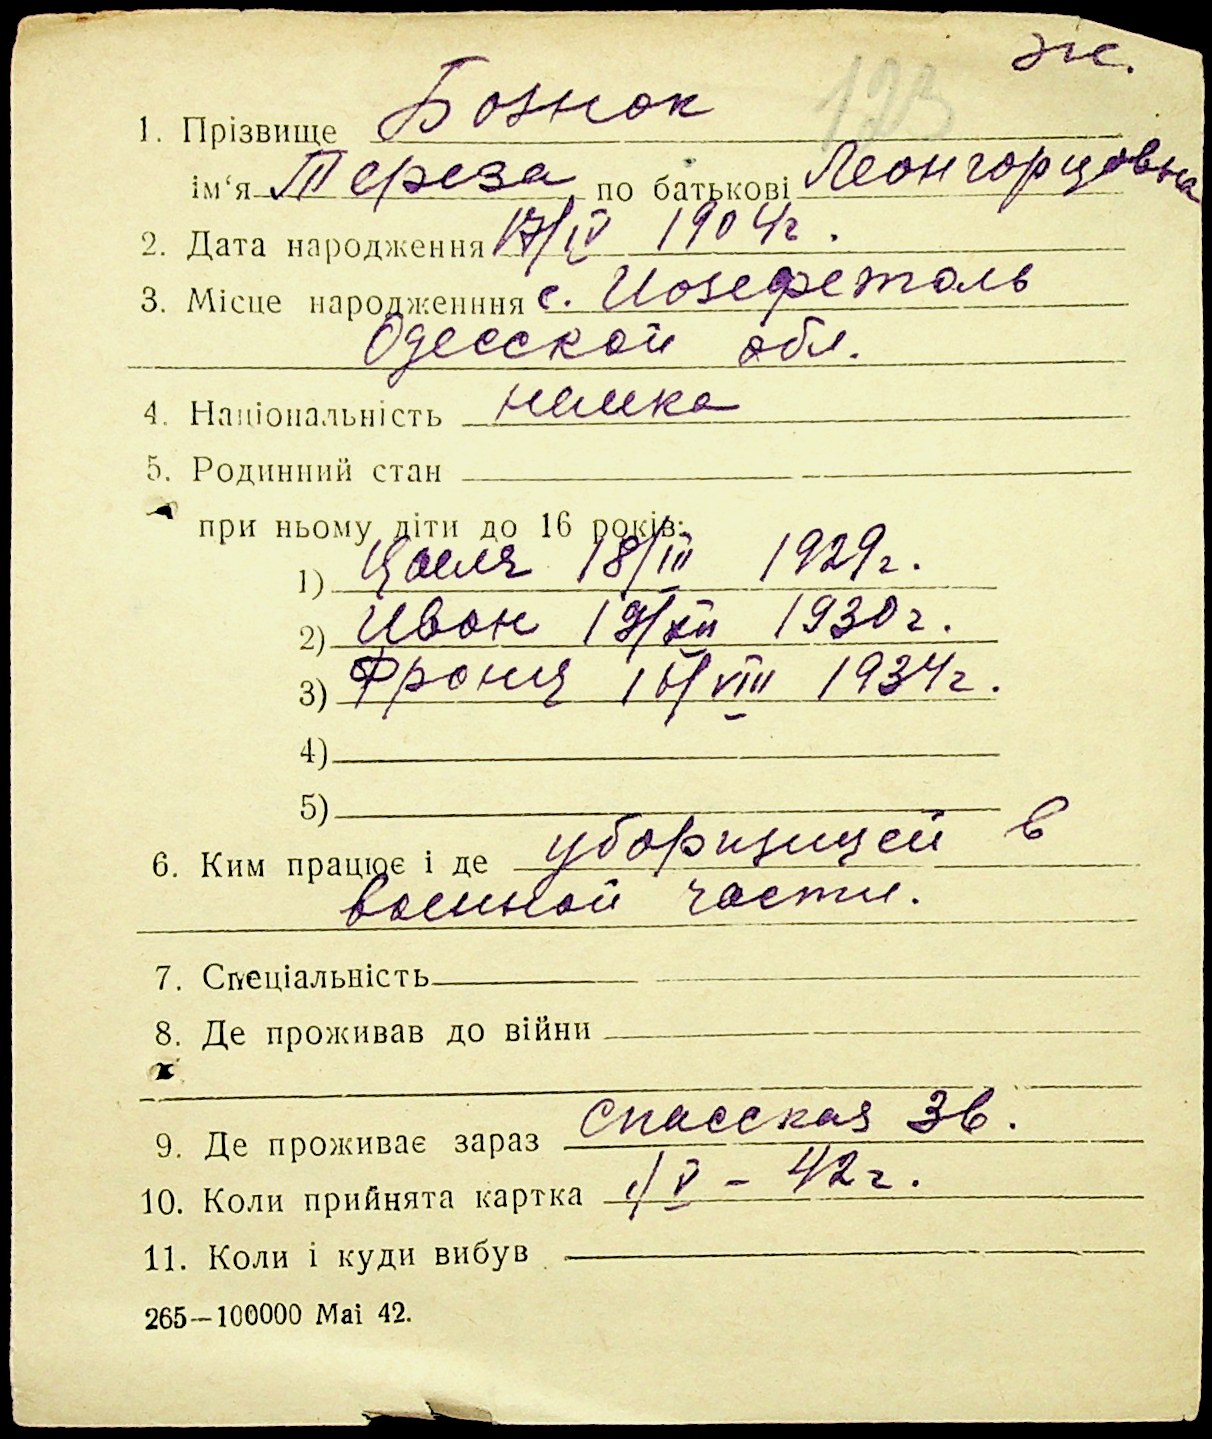 ж.
123
1. Прізвище Бознок
ім'я Тереза по батькові Леонгорцовна
2. Дата народження 17/IV 1904г.
3. Місце народженння с. Иозефеталь
Одесской обл.
4. Національність немка
5. Родинний стан
при ньому діти до 16 років:
1) 18/III 1929г.
2) Иван 19/XII 1930г.
3) Франц 16/VIII 1934г.
4)
5)
6. Ким працює і де уборщицей в
военной части.
7. Спеціальність
8. Де проживав до війни
9. Де проживає зараз Спасская 3в.
10. Коли прийнята картка 1/V – 42г.
11. Коли і куди вибув
265—100000 Маі 42.